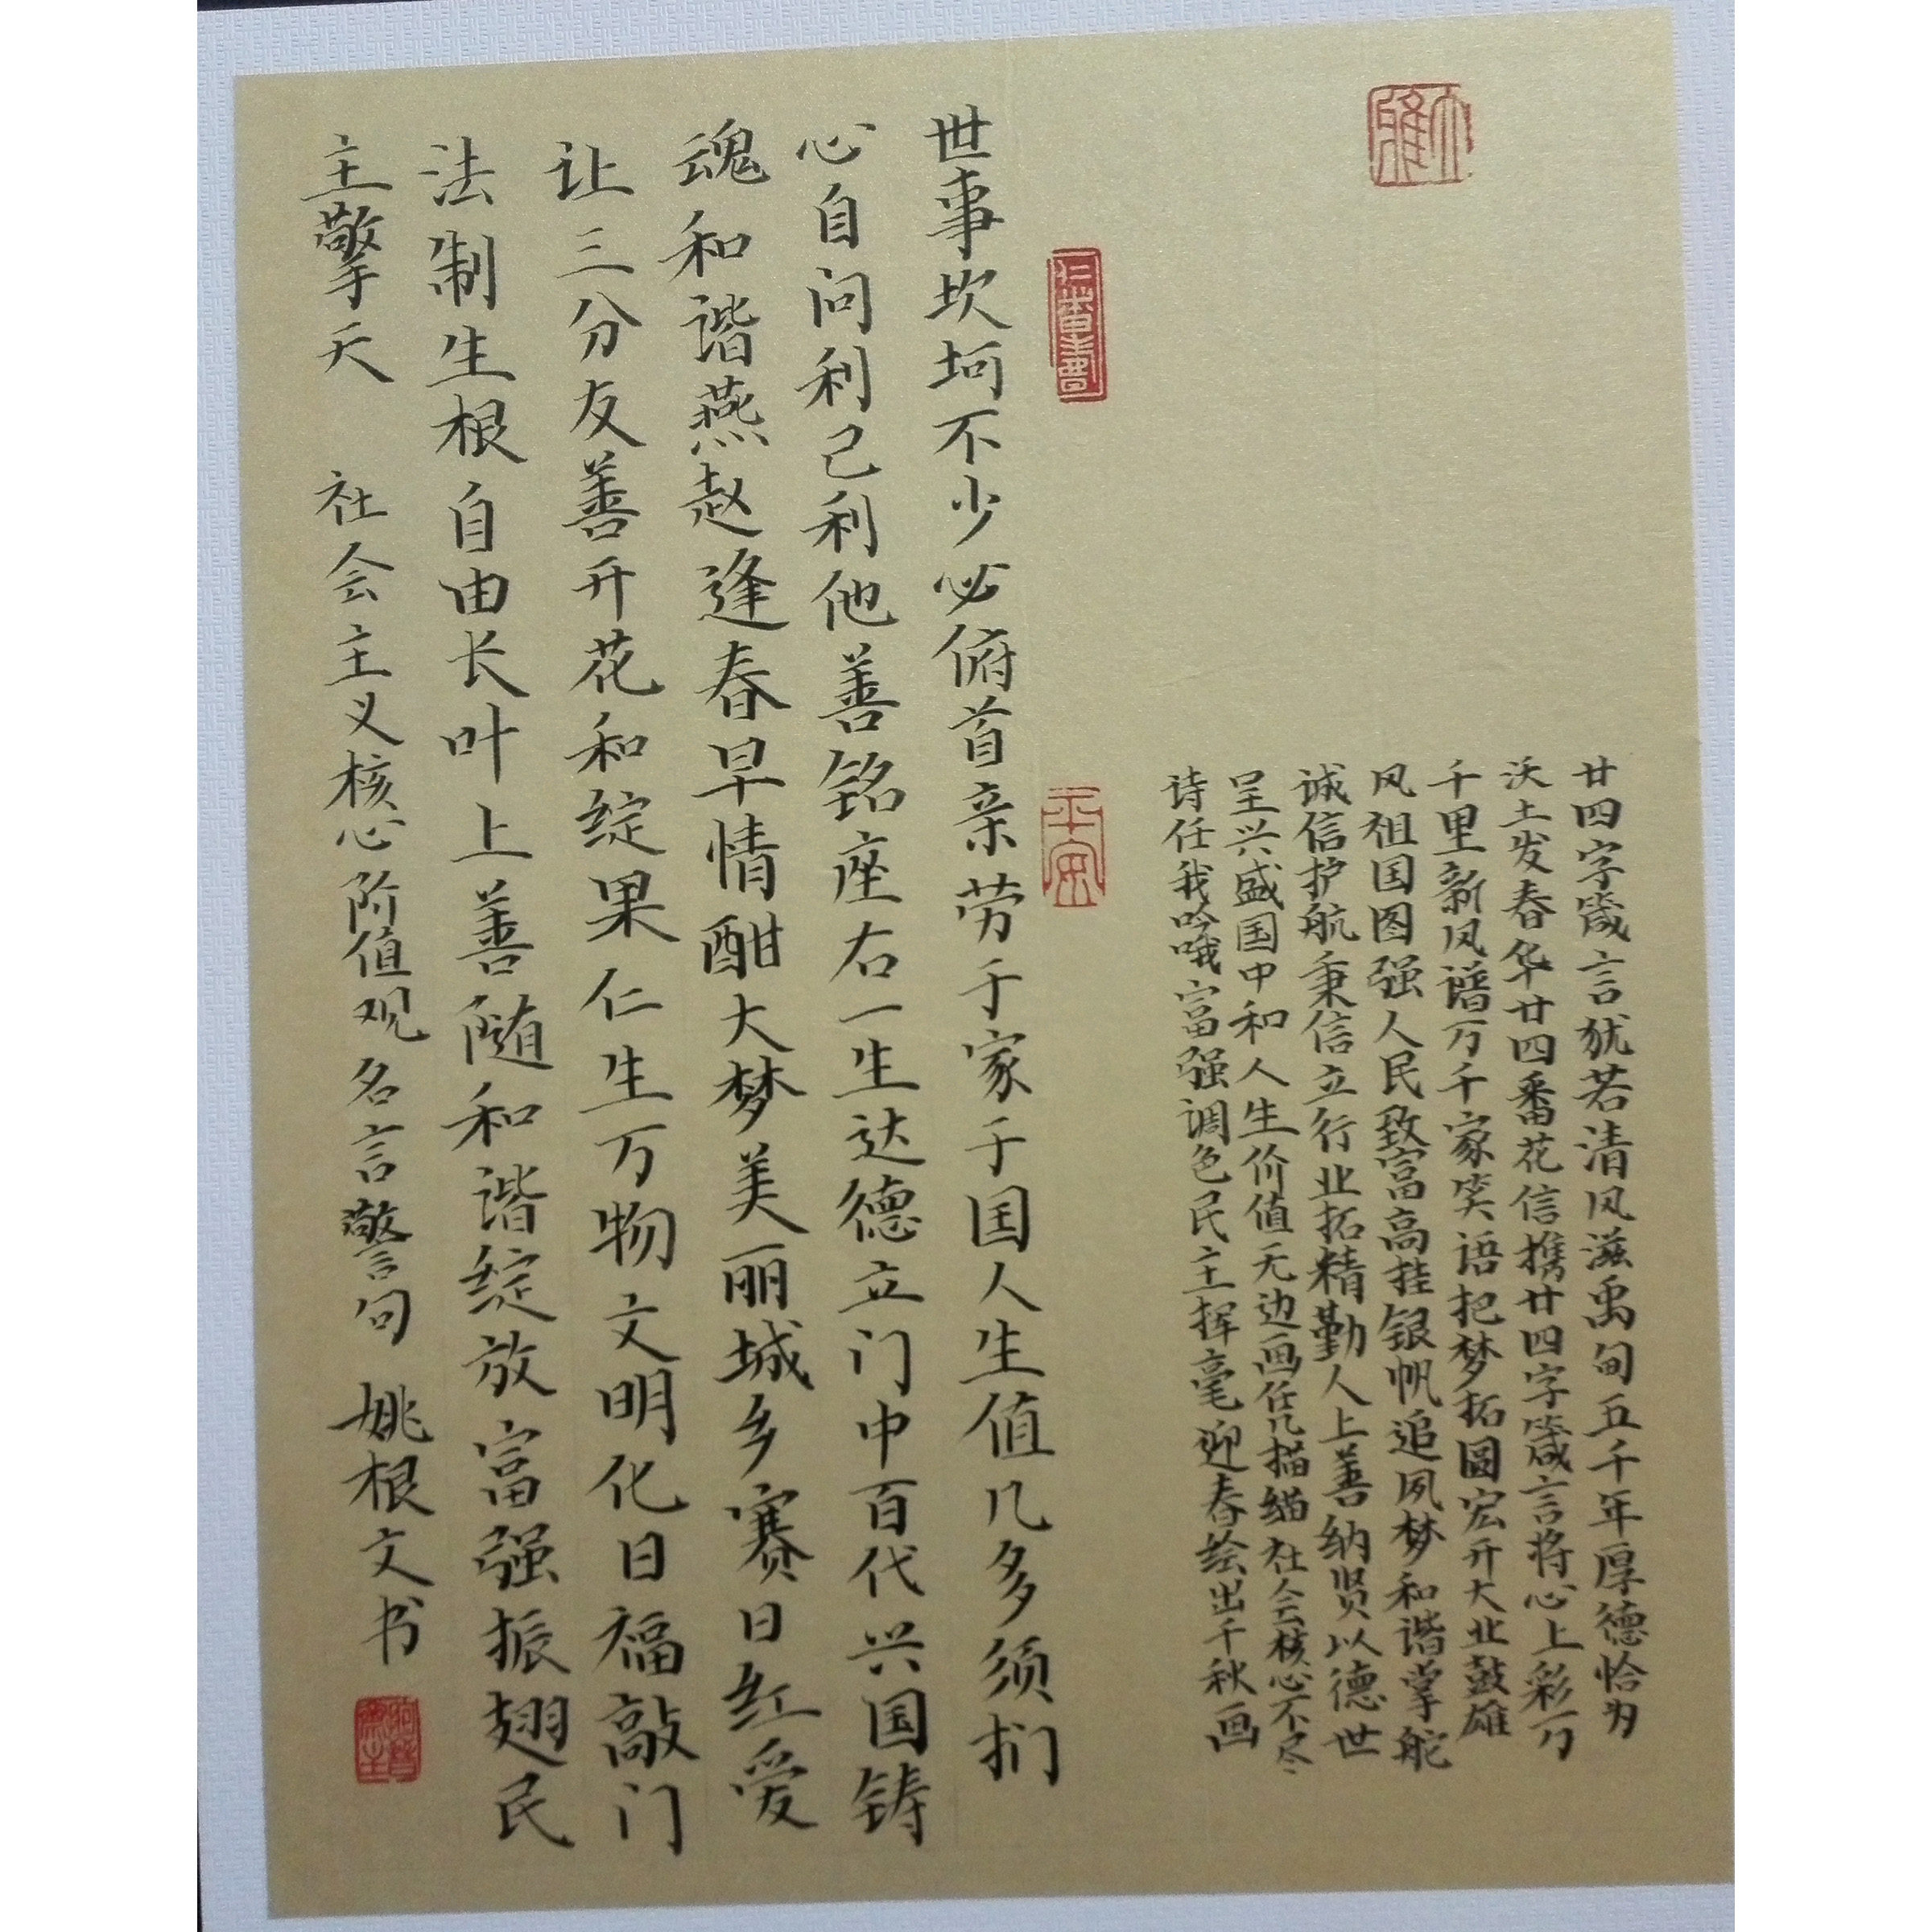 廿四字箴言犹若清风滋禹甸五千年厚德恰为
沃土发春华廿四番花信携廿四字箴言将心上彩万
千里新风谱万千家笑语把梦拓圆宏开大业鼓雄
风祖国图强人民致富高挂银帆追夙梦和谐掌舵
诚信护航秉信立行业拓精勤人上善纳贤以德世
呈兴盛国中和人生价值无边画任几描绘社会核心不尽
诗任我吟哦富强调色民主挥毫迎春绘出千秋画
世事坎坷不少必俯首亲劳于家于国人生值几多须扪
心自问利己利他善铭座右一生达德立门中百代兴国铸
魂和谐燕赵逢春早情酣大梦美丽城乡赛日红爱
让三分友善开花和绽果仁生万物文明化日福敲门
法制生根自由长叶上善随和谐绽放富强振翅民
主擎天 社会主义核心价值观名言警句 姚根文书
平安